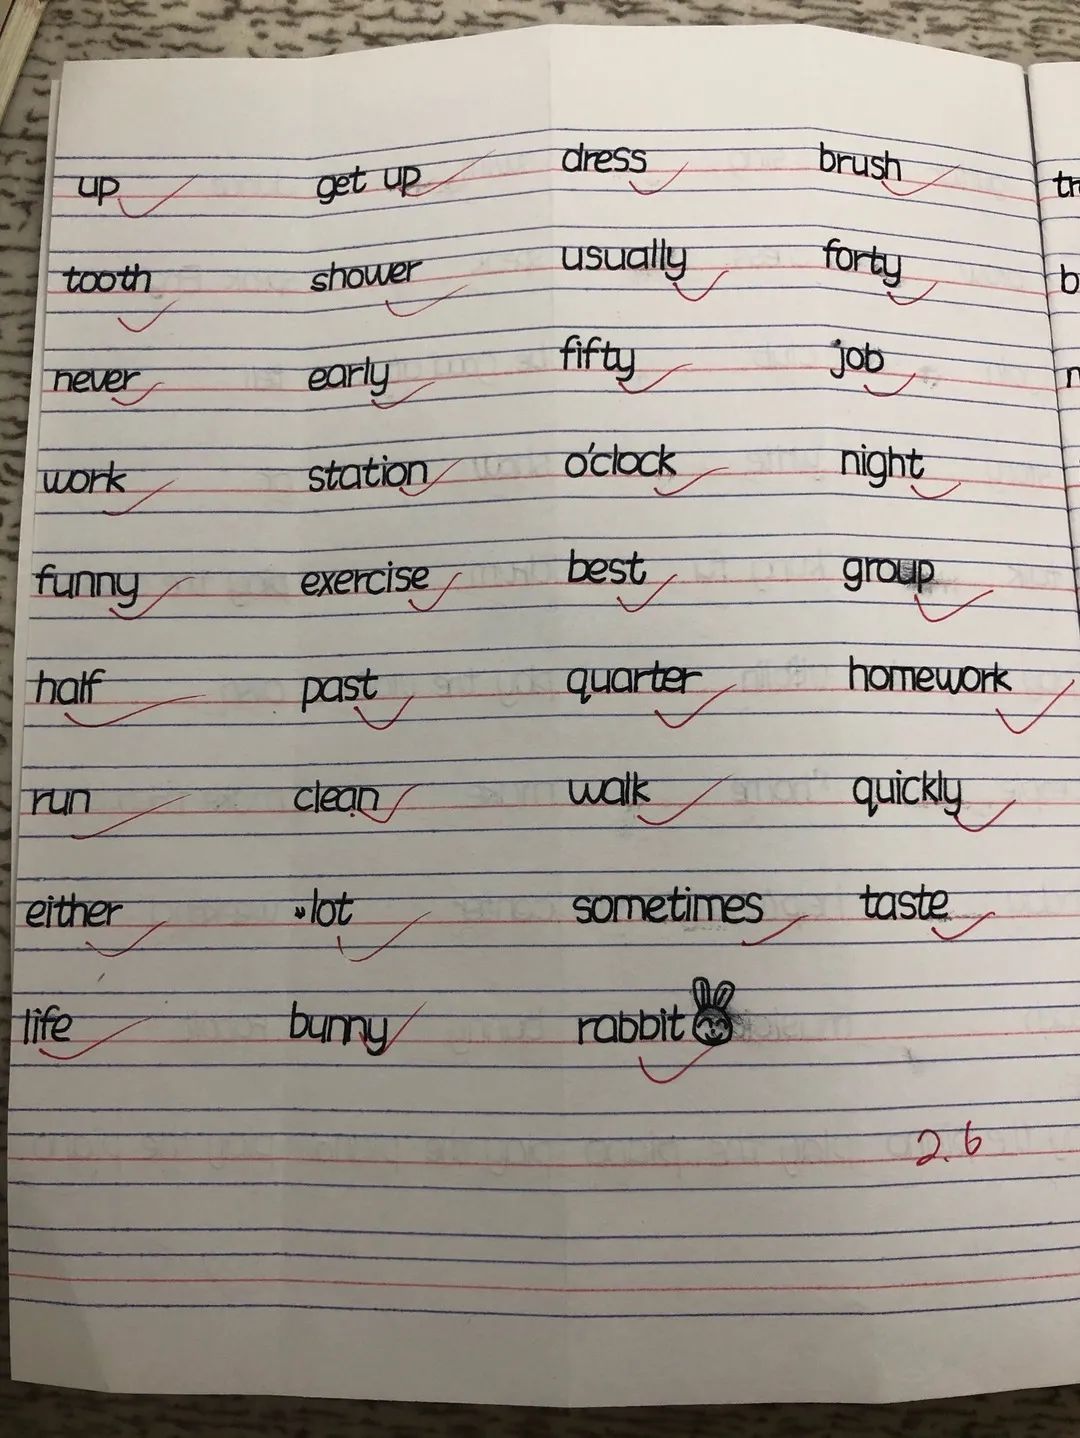 up get up dress brush
tooth shower usually forty
never early fifty job
work station o'clock night
funny exercise best group
half past quarter homework
run clean walk quickly
either lot sometimes taste
life bunny rabbit
2.6